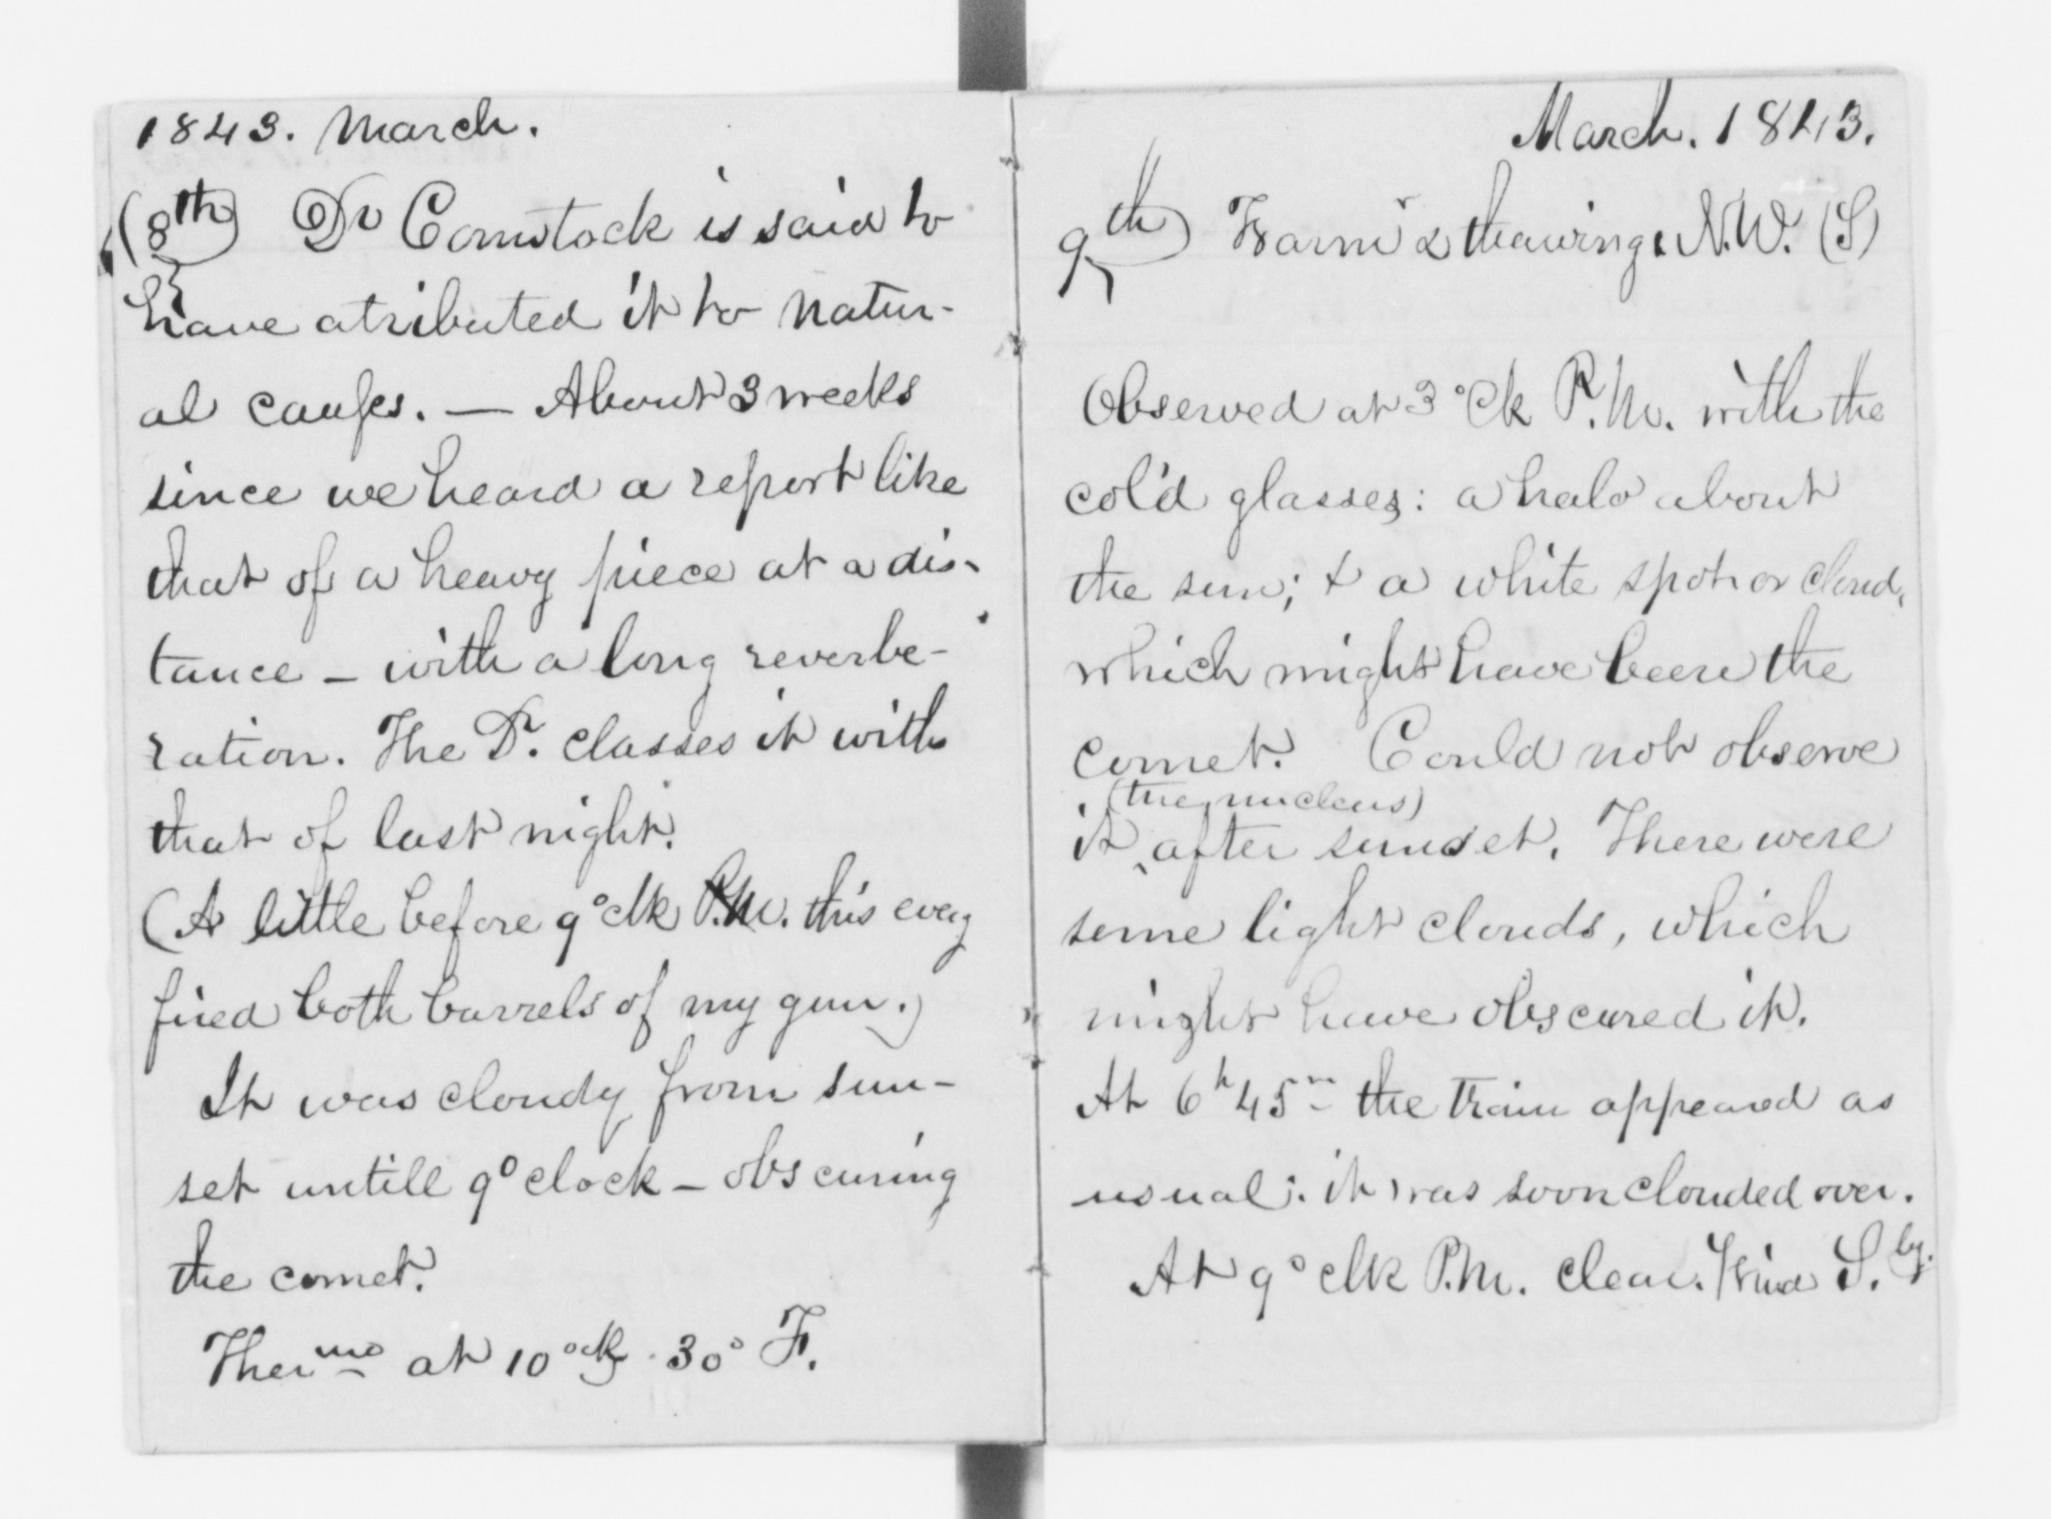 1843. March.
(8th) Dr Comstock is said to
have atributed it to natur-
al causes. — About 3 weeks
since we heard a report like
that of a heavy piece at a dis-
tance — with a long reverbe-
ration. The Dr. classes it with
that of last night.
(A little before 9 o'clk P.M. this eveg
fired both barrels of my gun.)
It was cloudy from sun-
set untill 9 o'clock — obscuring
the comet.
Thermo at 10 o'ck 30° F.
March. 1843.
9th) Warm & thawing. N.W. (S)
Observed at 3 o'ck P.M. with the
col'd glasses: a halo about
the sun; & a white spot or cloud,
which might have been the
comet. Could not observe
(the nucleus)
it ‸ after sunset. There were
some light clouds, which
might have obscured it.
At 6h 45m the train appeared as
usual: it was soon clouded over.
At 9 o'clk P.M. clear. Wind S. ly.